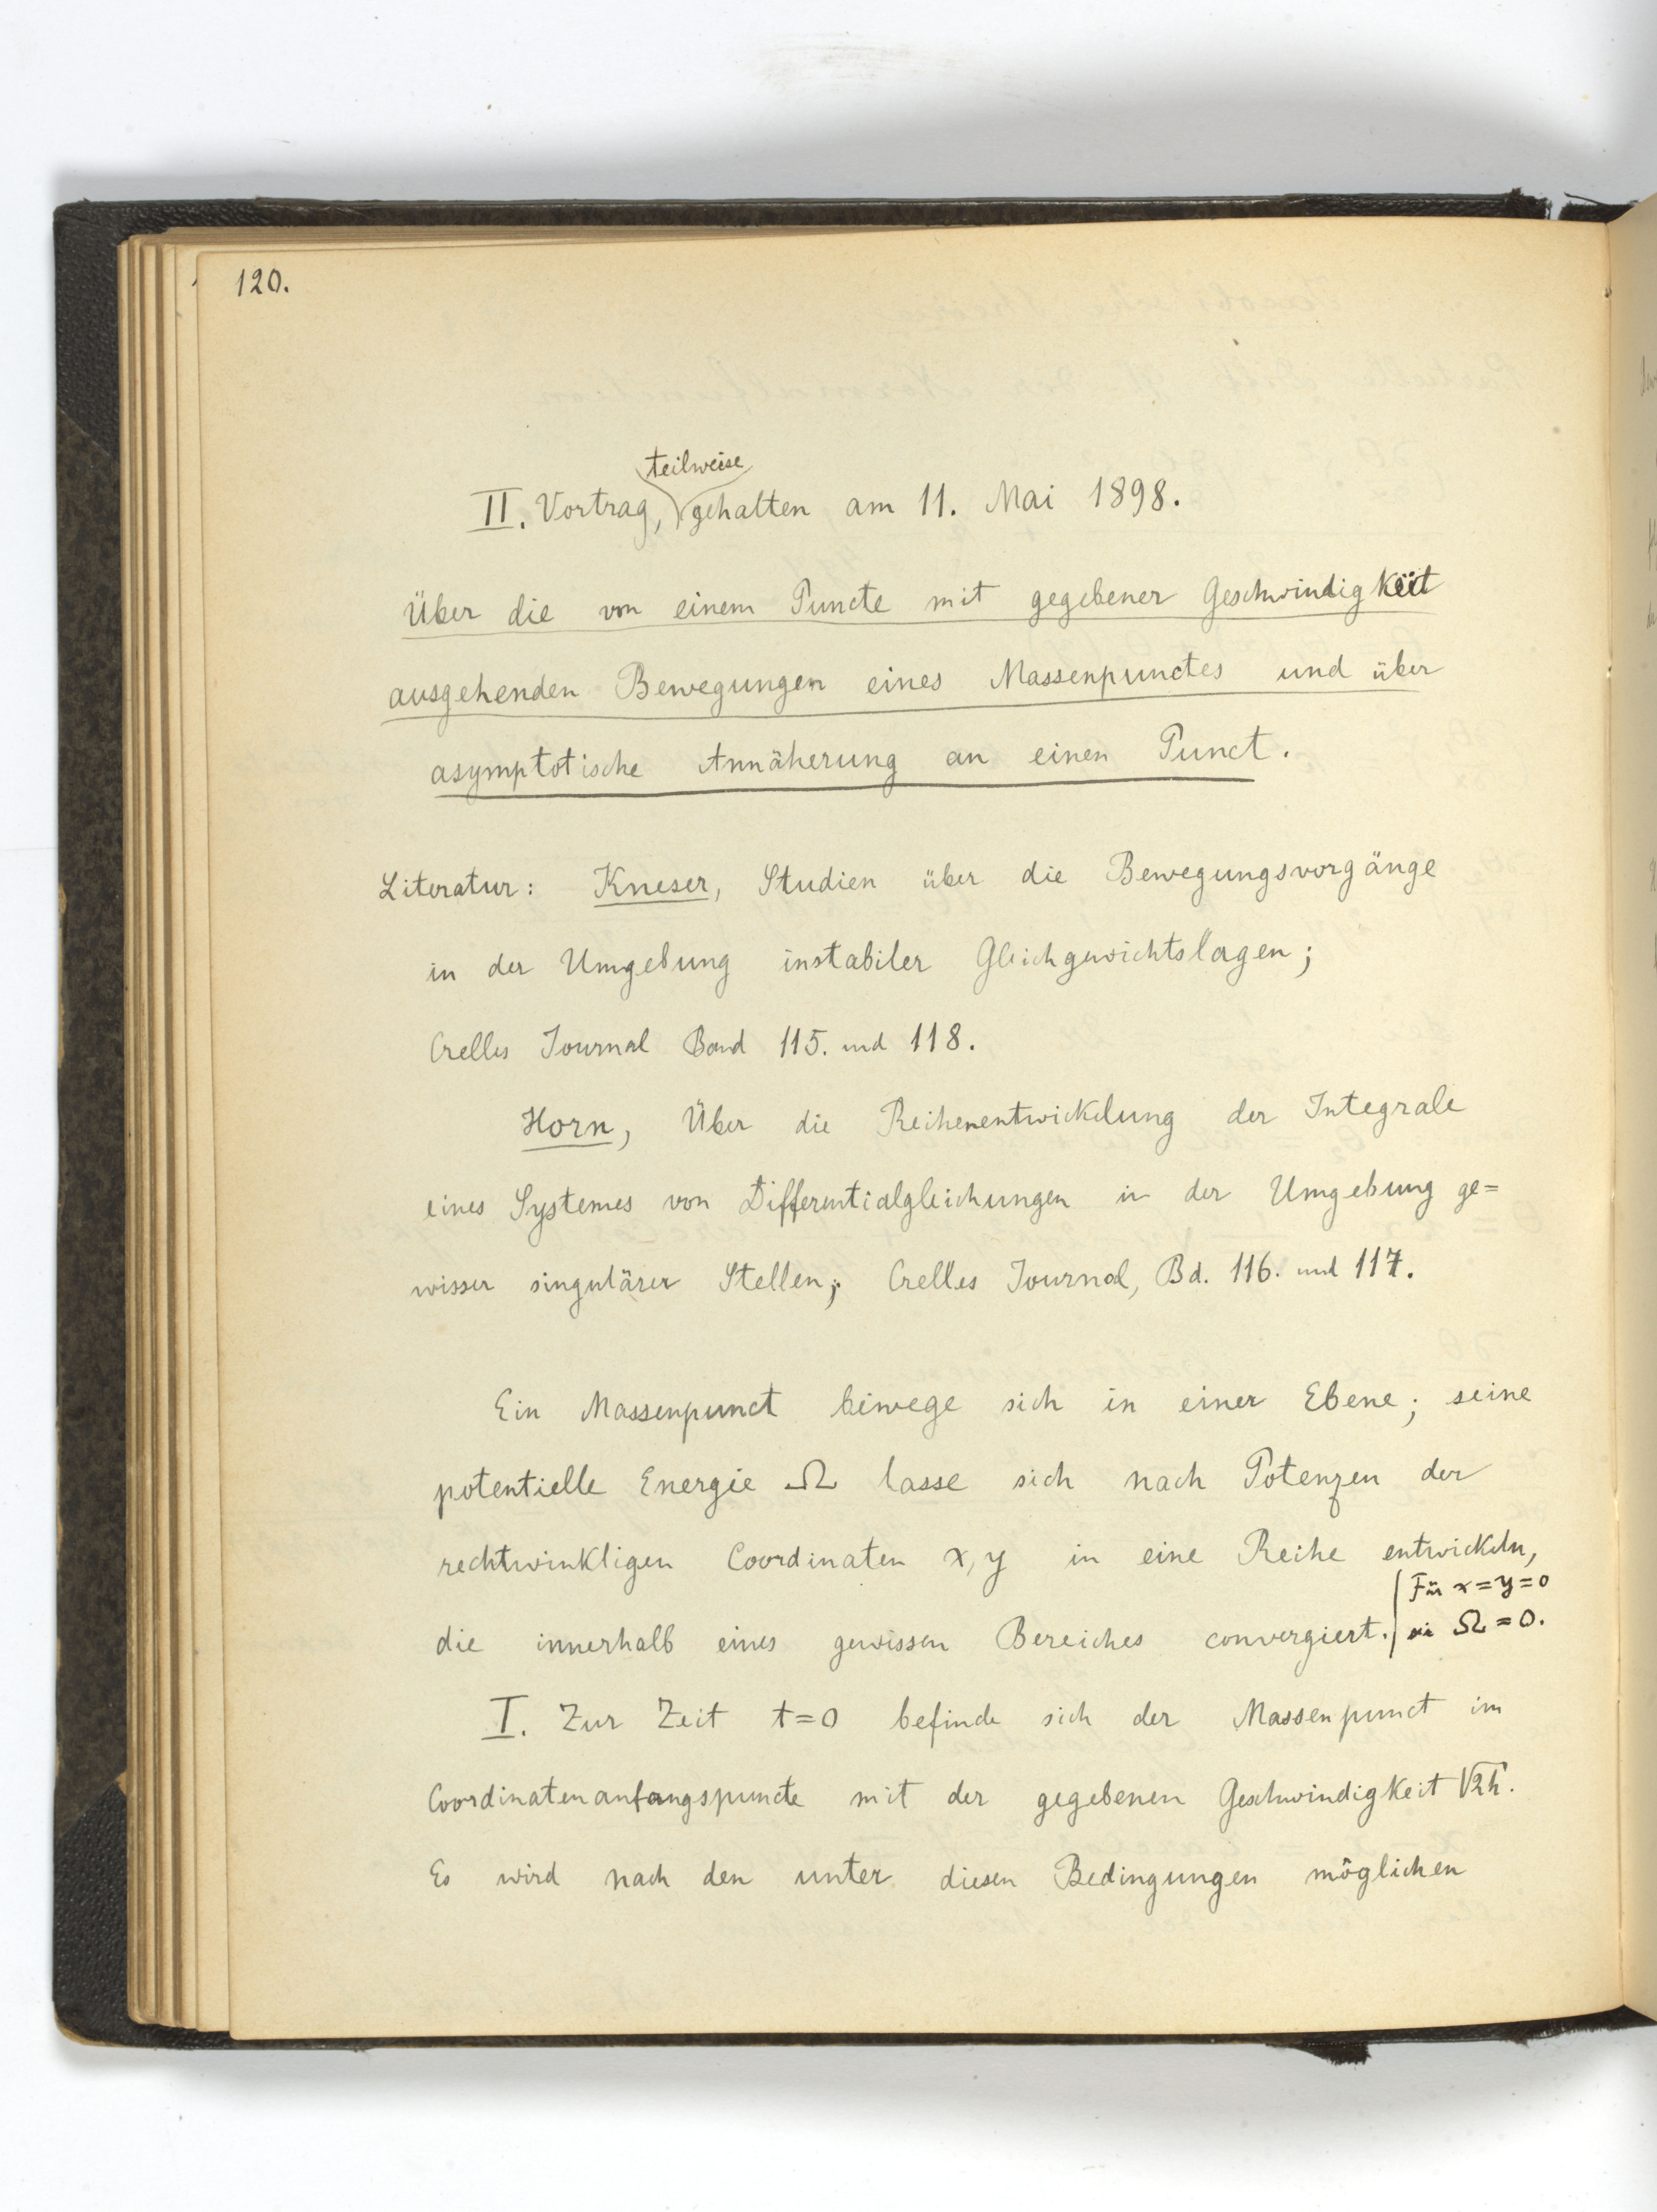 120.
II. Vortrag, teilweise gehalten am 11. Mai 1898.
Über die von einem Puncte mit gegebener Geschwindigkeit
ausgehenden Bewegungen eines Massenpunctes und über
asymptotische Annäherung an einen Punct.
Literatur: Kneser, Studien über die Bewegungsvorgänge
in der Umgebung instabiler Gleichgewichtslagen;
Crelles Journal Band 115. und 118.
Horn, Über die Reihenentwickelung der Integrale
eines Systemes von Differentialgleichungen in der Umgebung ge=
wisser singulärer Stellen; Crelles Journal, Bd. 116. und 117.
Ein Massenpunct bewege sich in einer Ebene; seine
potentielle Energie Ω lasse sich nach Potenzen der
rechtwinkligen Coordinaten x, y in eine Reihe entwickeln,
die innerhalb eines gewissen Bereiches convergiert.
Für x=y=0
sei Ω=0.
I. Zur Zeit t=0 befinde sich der Massenpunct im
Coordinatenanfangspuncte mit der gegebenen Geschwindigkeit √2h.
Es wird nach den unter diesen Bedingungen möglichen